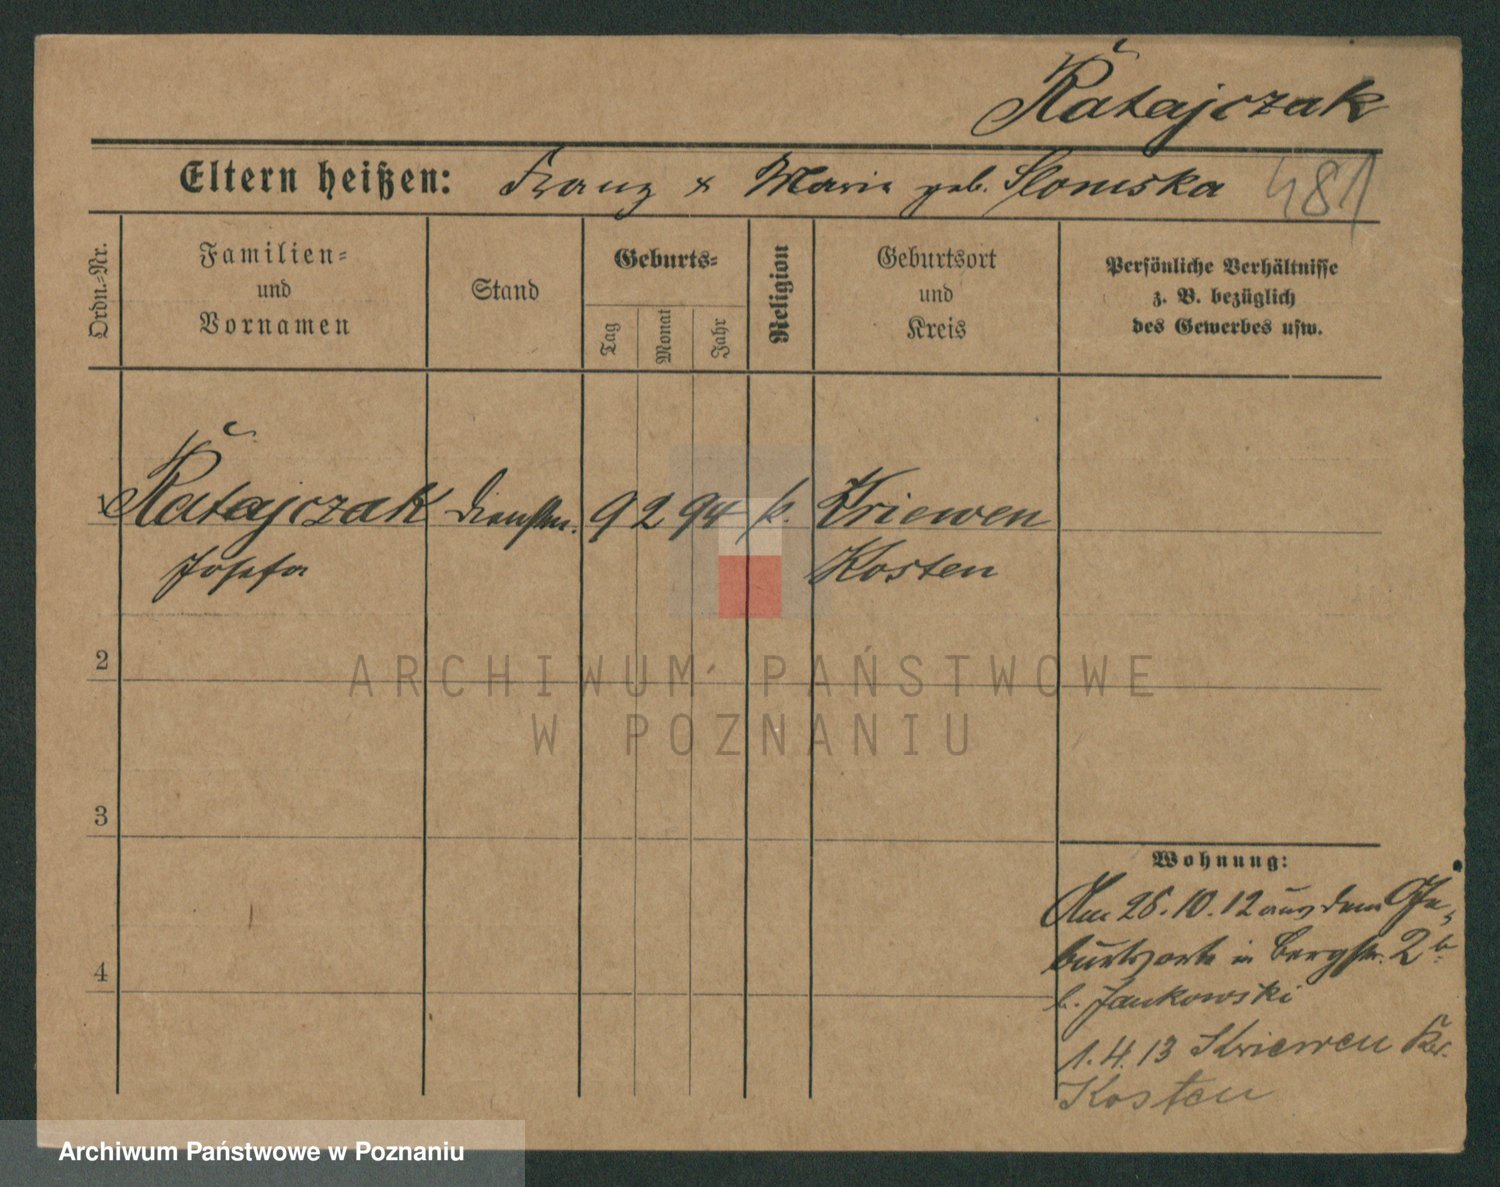 Ratajczak
Eltern heißen: Franz & Maria geb. Slomska 481
Ordn.-Nr.
Familien-
und
Vornamen
Stand
Geburts-
Tag
Monat
Jahr
Religion
Geburtsort
und
Kreis
Persönliche Verhältnisse
z. B. bezüglich
des Gewerbes usw.
Ratajczak Dienstm. 9 2 94 k. Kriewen
Josefa Kosten
2
ARCHIWUM PAŃSTWOWE
W POZNANIU
3
Wohnung:
Am 28.10.12 aus dem Ge-
4
burtsorte in Bergstr. 2b
b. Jankowski
1.4.13 Kriewen Kr.
Kosten
Archiwum Państwowe w Poznaniu